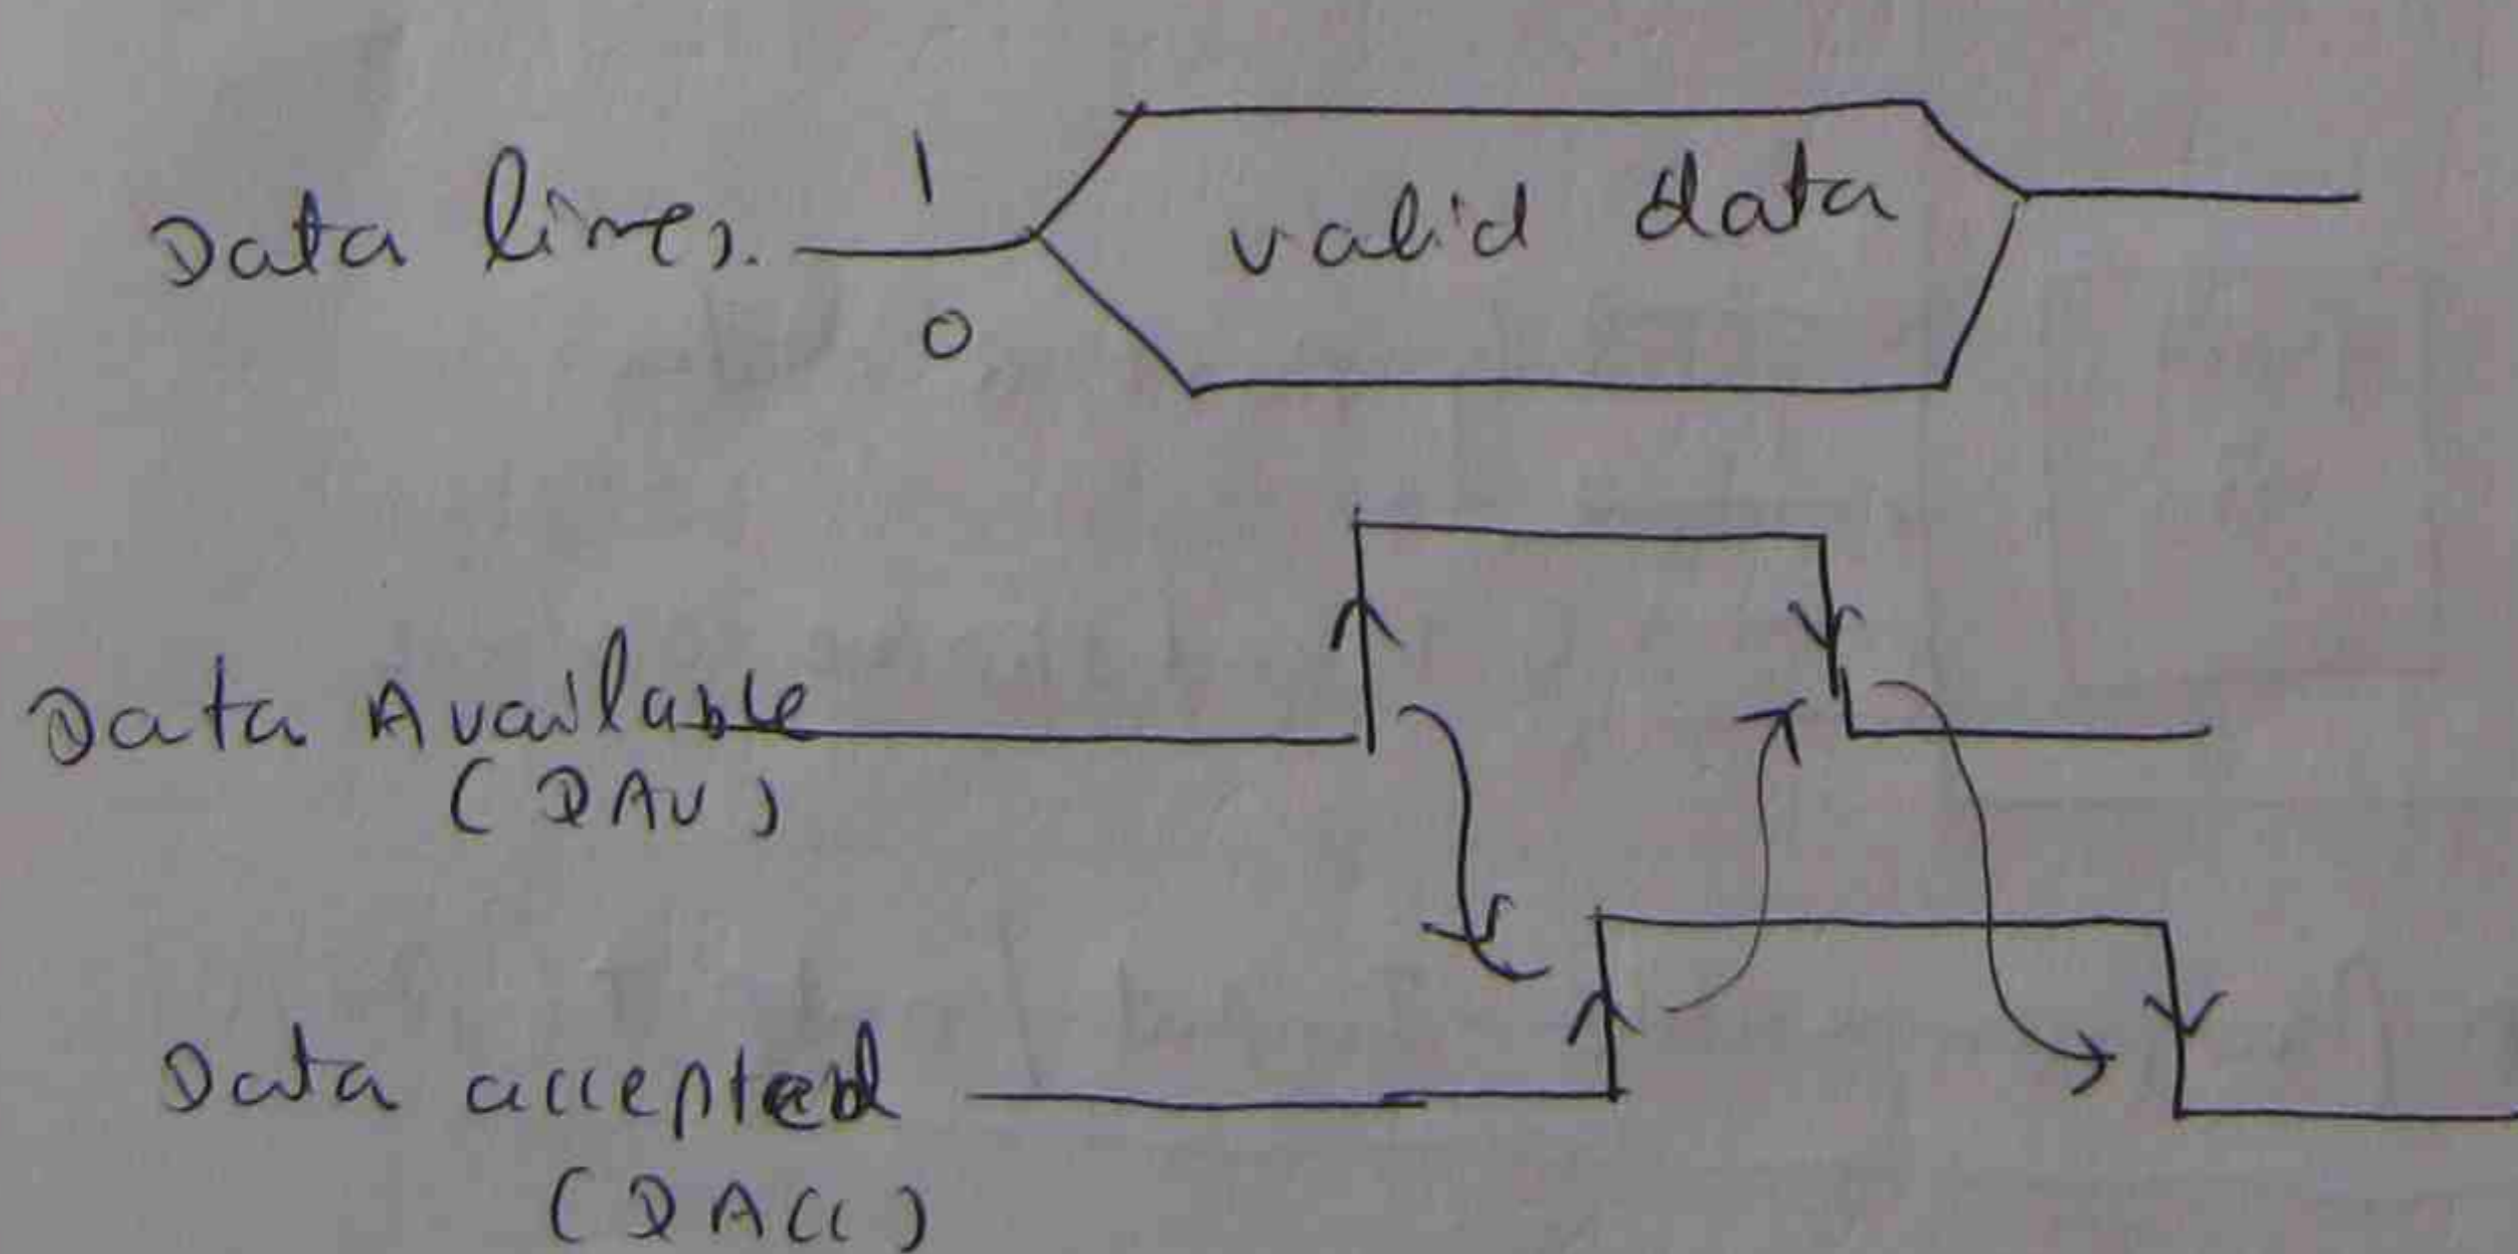 1
Data lines.
valid data
0
Data Available
(DAV)
Data accepted
(DACC)